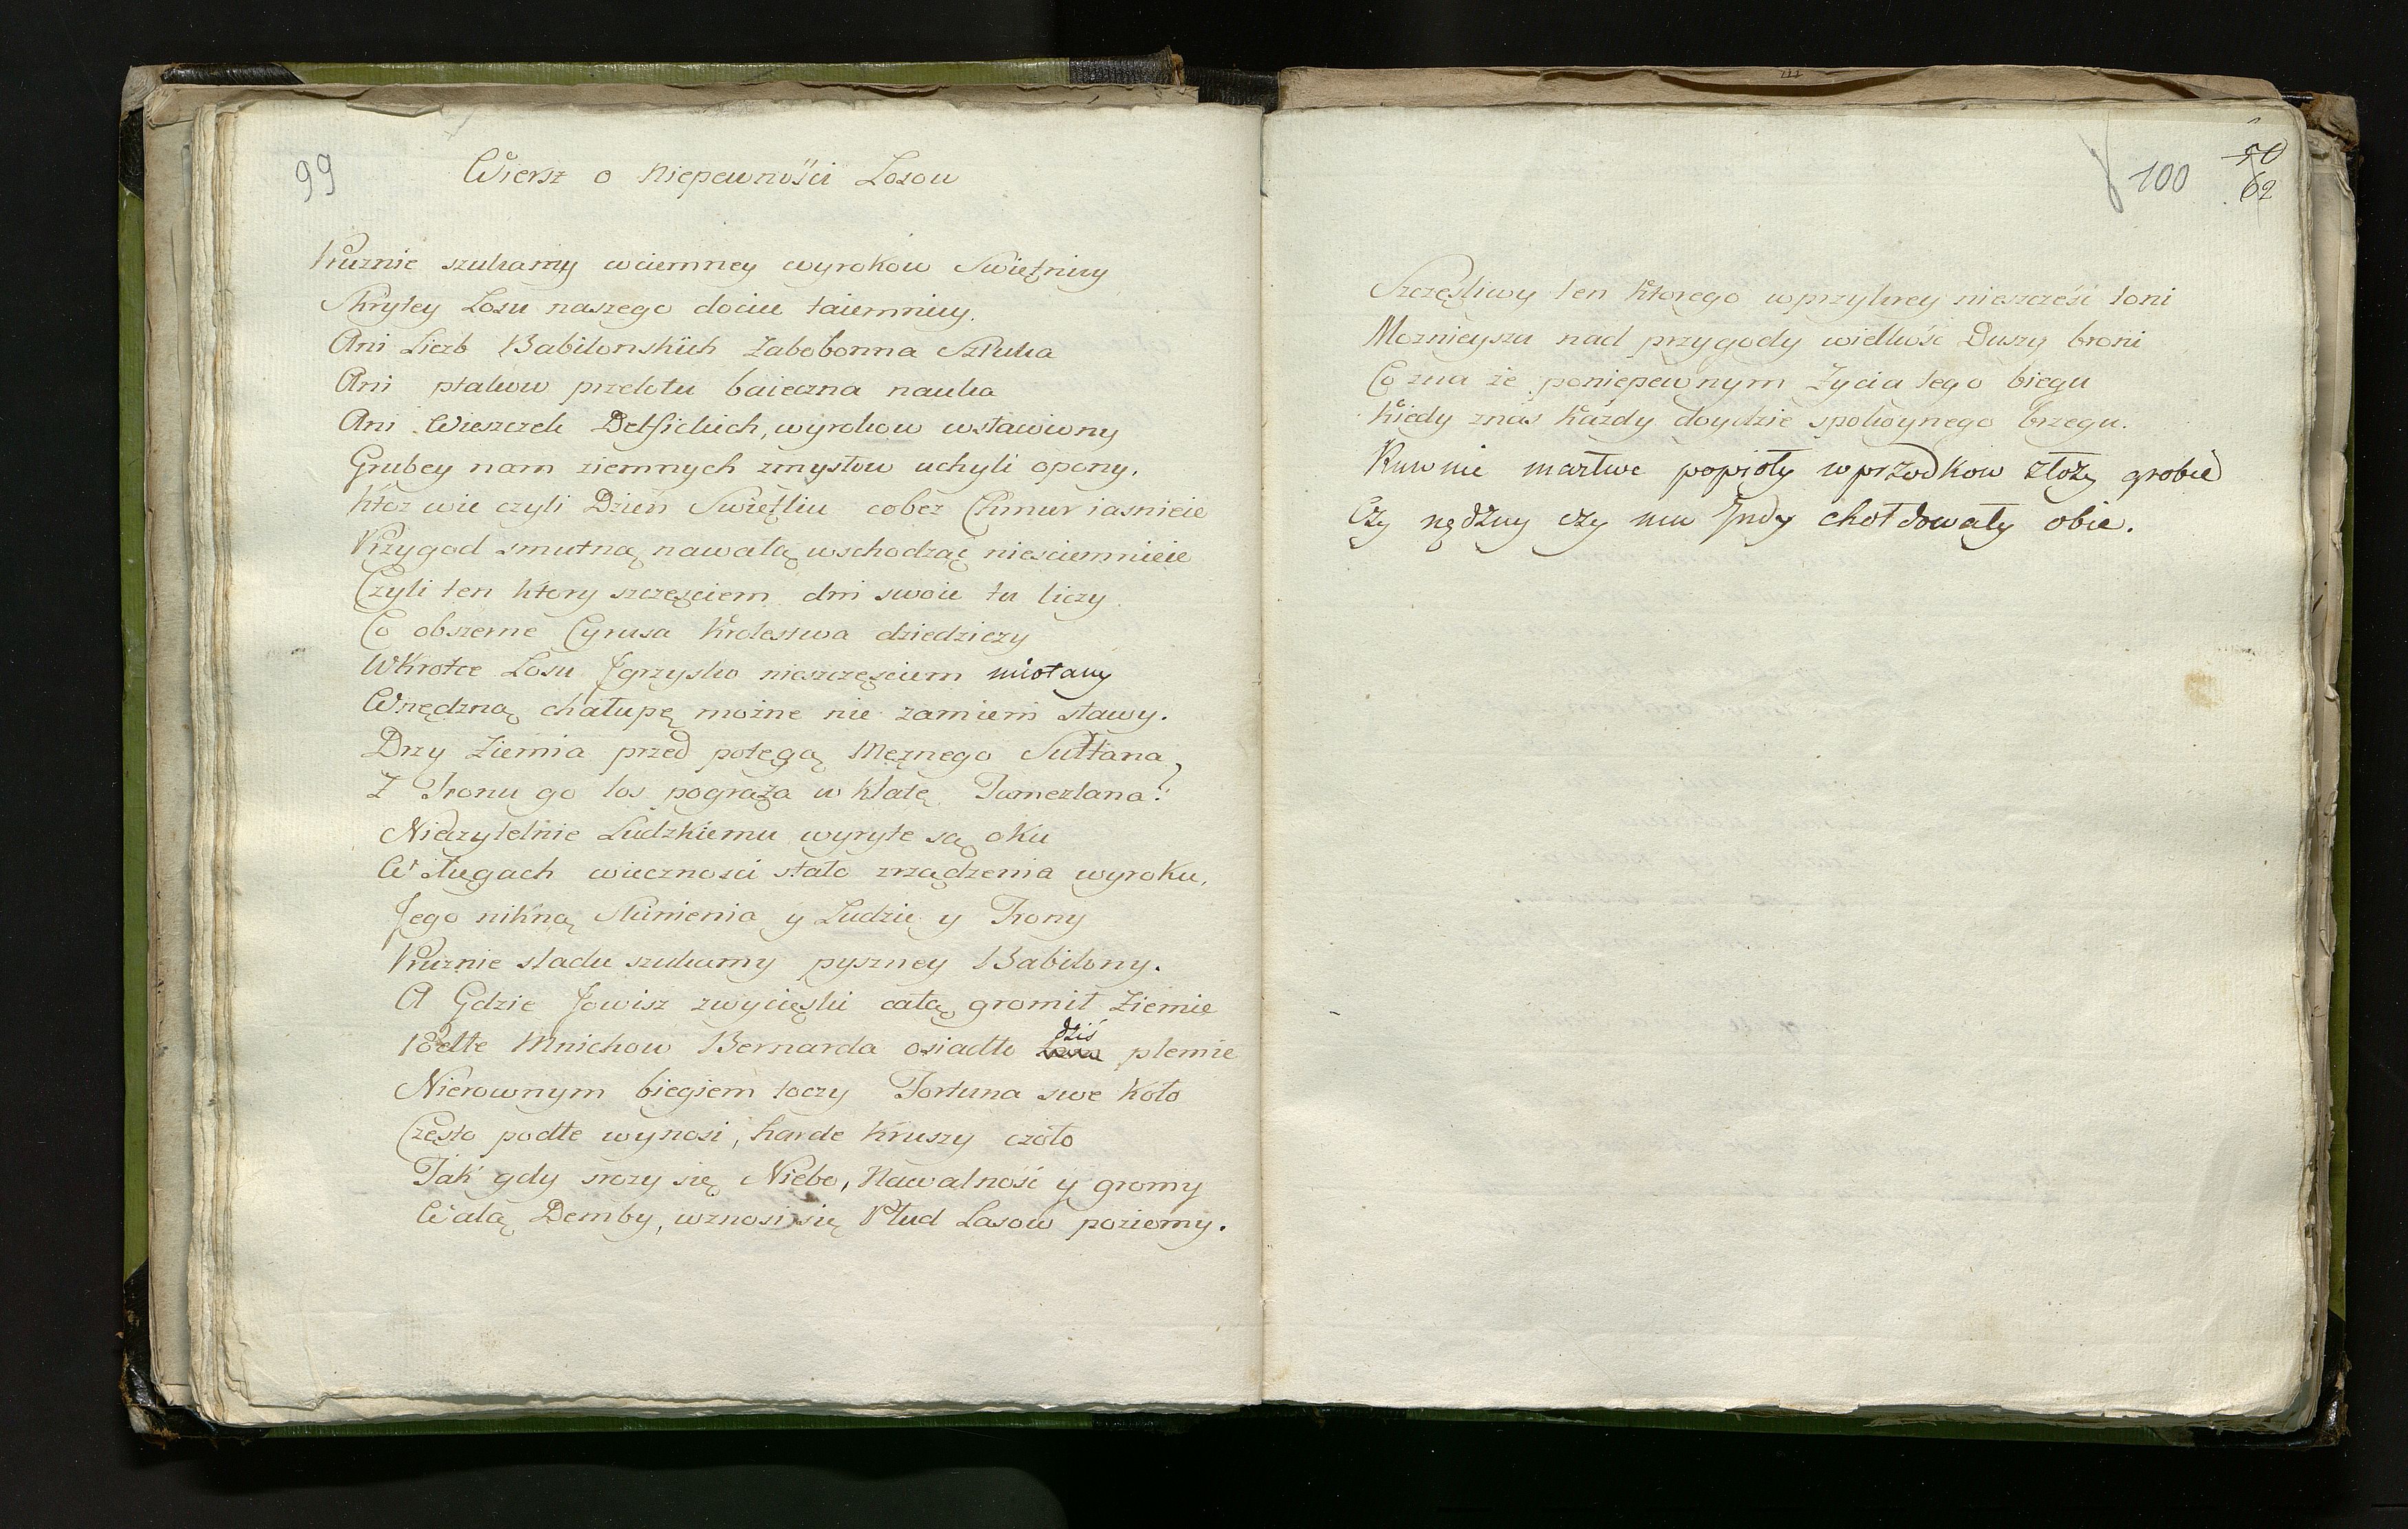 99
Wiersz o niepewności Losow
Pruznie szukamy wciemney wyrokow Swiętnicy
Skrytey Losu naszego dociec taiemnicy.
Ani Liczb Babilonskich Zabobonna Sztuka
Ani ptakow przelotu baieczna nauka
Ani Wieszczek Delfickich, wyrokow wsławiony
Grubey nam ziemnych zmysłow uchyli opony.
Ktoz wie czyli Dzień Swietliu cobez Chmur iasnieie
Przygod smutną nawałą wschodząc niesciemnieie
Czyli ten ktory szczęsciem dni swoie tu liczy
Co obszerne Cyrusa Krolestwa dziedziczy
Wkrotce Losu Jgrzysko nieszczęsciem miotany
Wnędzną chałupę możne nie zamieni stawy.
Drzy Ziemia przed potęgą Męznego Sułtana
Z Tronu go los pogrąża w klatę Tamerlana?
Nieczytelnie Ludzkiemu wyryte są oku
W sługach wieczności stałe zrządzenia wyroku,
Jego nikną Skinienia y Ludzie y Trony
Pruznie sladu szukamy pyszney Babilony.
A Gdzie Jowisz zwycięski całą gromił Ziemie
Podłe Mnichow Bernarda osiadło dziś plemie
Nierownym biegiem toczy Fortuna swe koło
Często podłe wynosi, harde kruszy czoło
Tak gdy srozy się Niebo, Nawalność y gromy
Walą Demby, wznosi się Płud Lasow poziomy.
100
50
62
Szczęsliwy ten ktorego wprzykrey nieszczęść toni
Moznieysza nad przygody wielkość Duszy broni
Co zna że poniepewnym Życia tego biegu
Kiedy znas każdy doydzie spokoynego brzegu.
Rownie martwe popioły wprzodkow złoży grobie
Czy nędzny czy mu Jndy chołdowały obie.